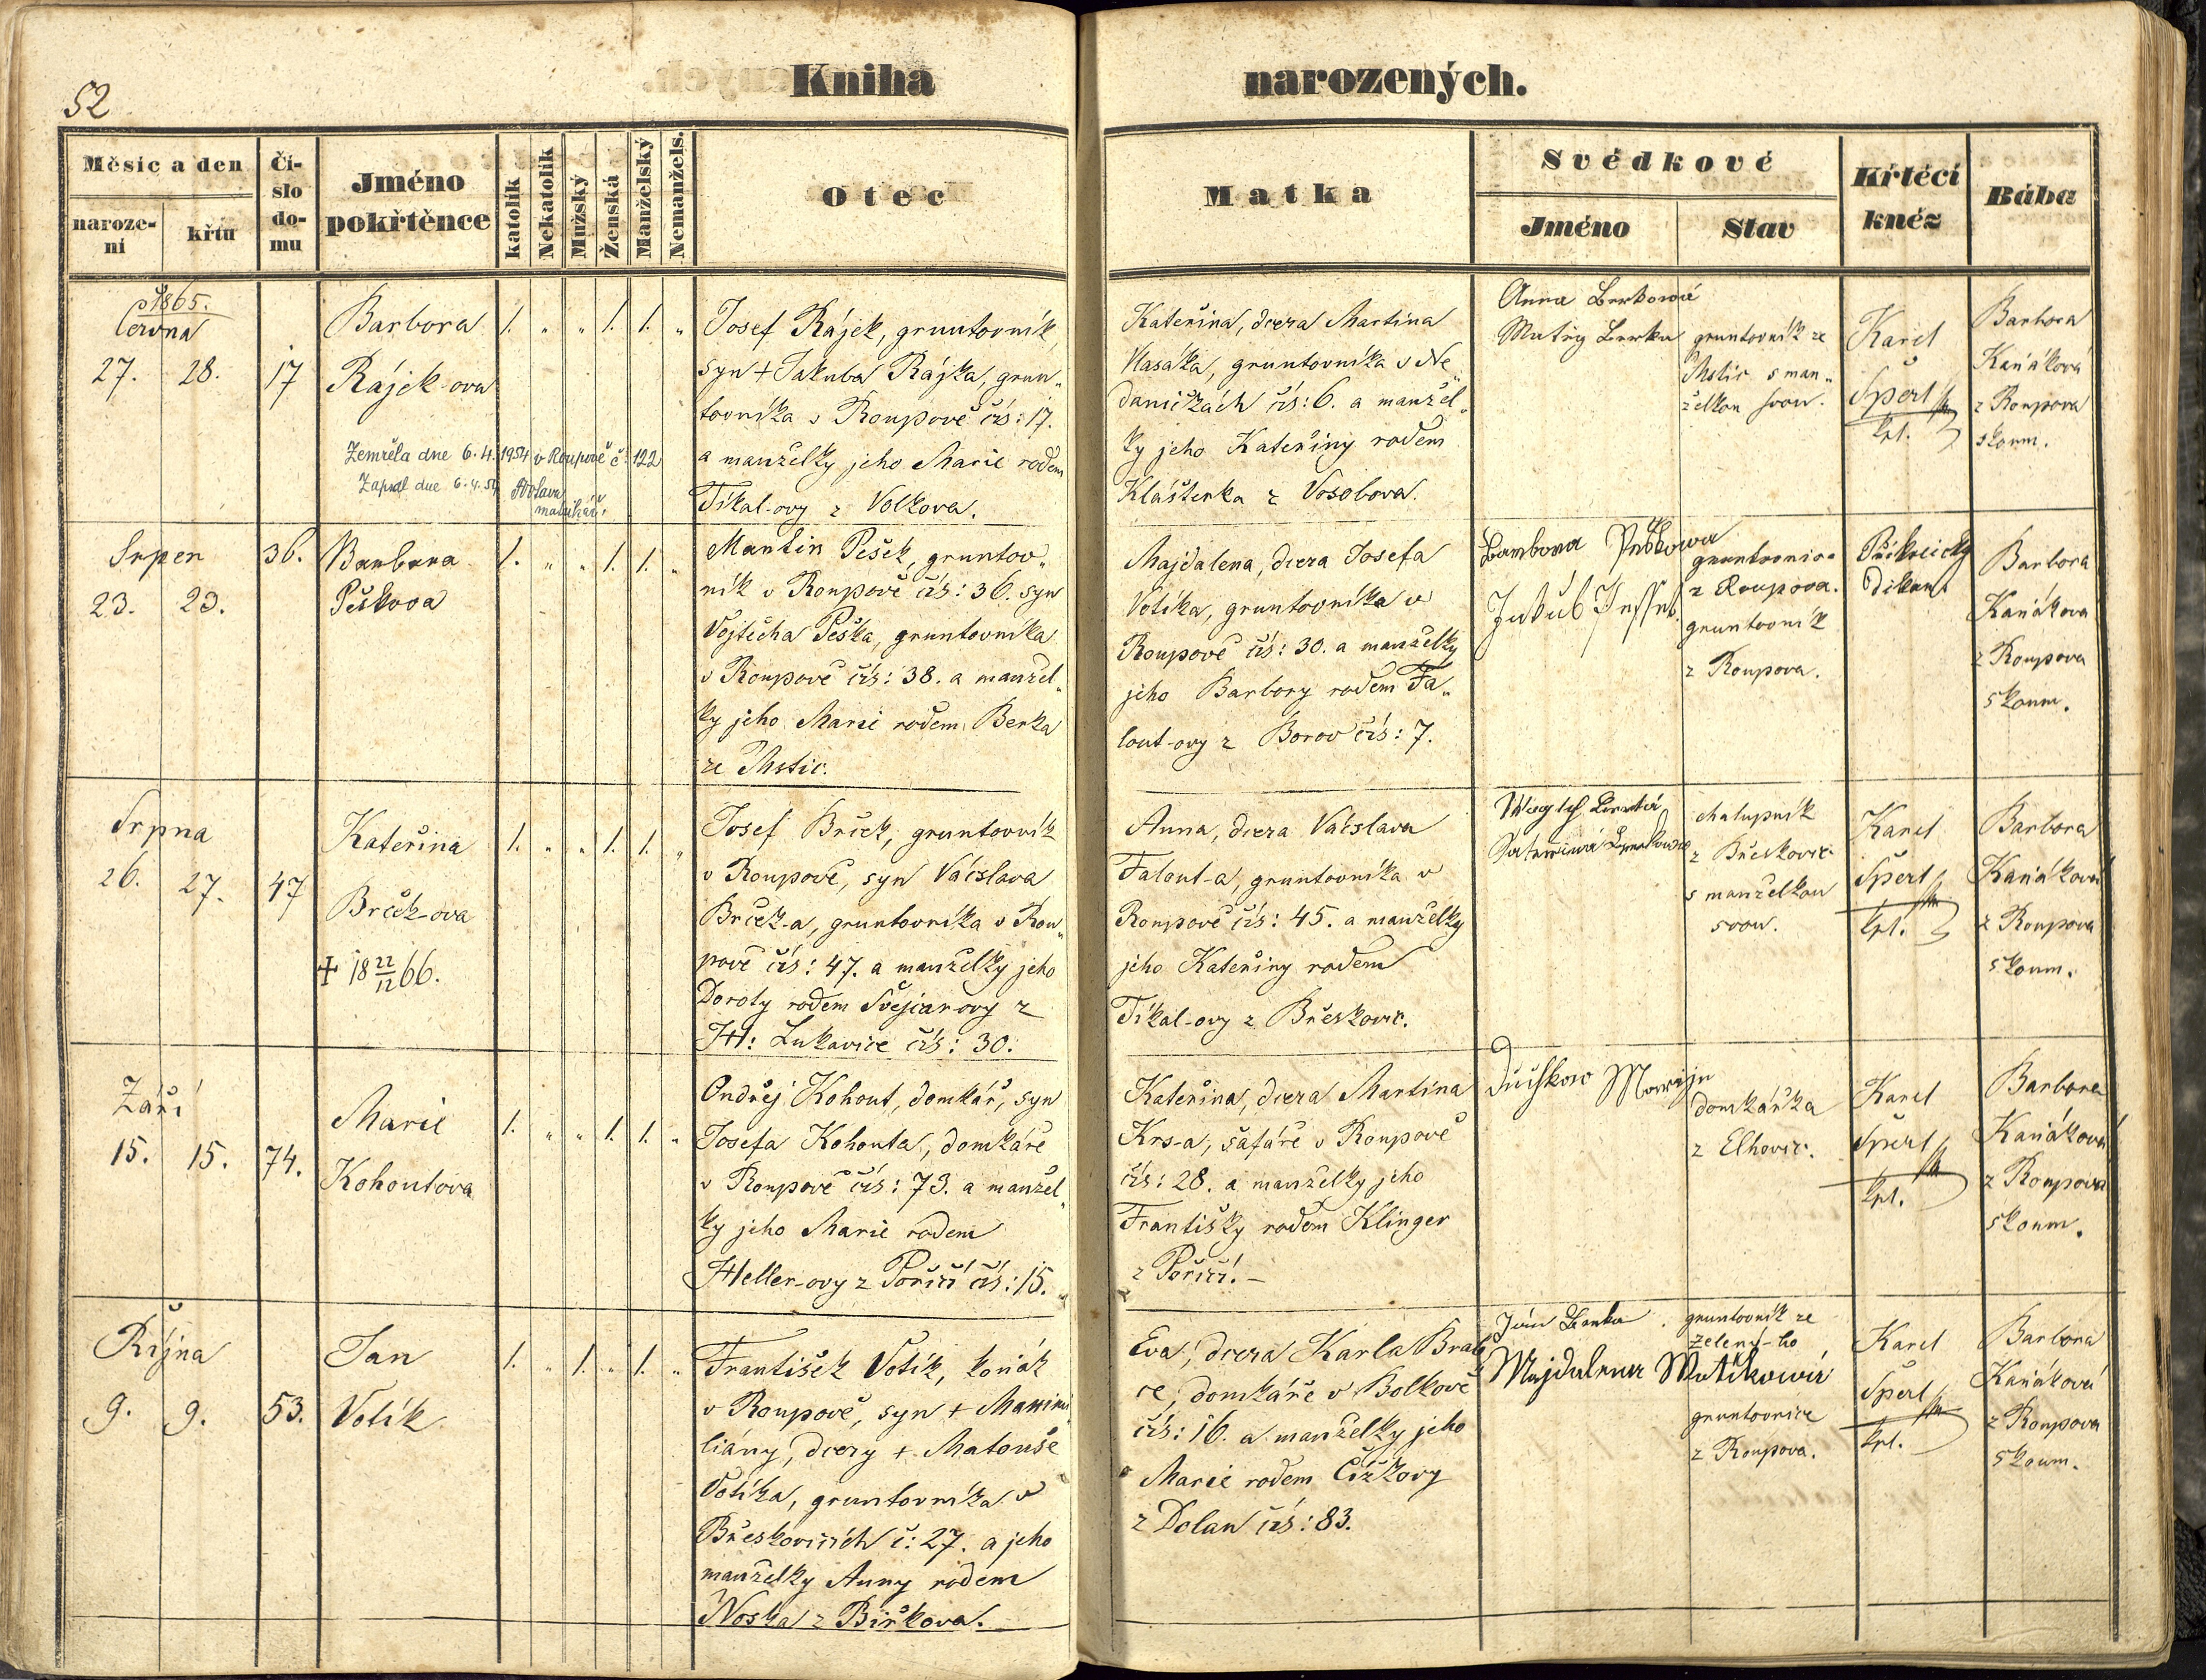 52
Kniha
narozených.
Měsíc a den
naroze-
ní
křtu
Čí-
slo
do-
mu
Jméno
pokřtěnce
katolík
Nekatolík
Mužský
Ženská
Manželský
Nemanžels.
Otec
Matka
Svědkové
Jméno
Stav
Křtěcí
kněz
Bába
1865.
Června
27. 28. 17
Barbora
Rájek-ova
1. „ „ 1. 1. „
Zemřela dne 6.4.1954 v Roupově č. 122
Zapsal dne 6.4.54
matrikář
Josef Rájek, gruntovník,
syn + Jakuba Rájka, grun„
tovníka v Roupově čís: 17.
a manželky jeho Marie rodem
Tíkal-ovy z Volkova.
Kateřina, dcera Martina
Vlasáka, gruntovníka v Ne„
daničkách čís: 6. a manžel„
ky jeho Kateřiny rodem
Klášterka z Vosobova.
Anna Berkowá
Matěg Berka
gruntovník ze
Lhstic s man„
želkou svou.
Karel
Šperl
kpl.
Barbora
Kaňáková
z Roupova
skoum.
Srpen
23. 23. 36.
Barbora
Peškova
1. „ „ 1. 1. „
Martin Pešek, gruntov„
ník v Roupově čís: 36. syn
Vojtěcha Peška, gruntovníka
v Roupově čís: 38. a manžel„
ky jeho Marie rodem Berka
ze Lhstic.
Majdalena, dcera Josefa
Votíka, gruntovníka v
Roupově čís: 30. a manželky
jeho Barbory rodem Fa„
lout-ovy z Borov čís: 7.
Barbora
Jakub
gruntovnice
z Roupova.
gruntovník
z Roupova.
Děkan
Barbora
Kaňákova
z Roupova
skoum.
Srpna
26. 27. 47
Kateřina
Brček-ova
+ 18 22/12 66.
1. „ „ 1. 1. „
Josef Brček, gruntovník
v Roupově, syn Václava
Brček-a, gruntovníka v Rou„
pově čís: 47. a manželky jeho
Doroty rodem Švejcarovy z
H: Lukavice čís: 30.
Anna, dcera Václava
Falout-a, gruntovníka v
Roupově čís: 45. a manželky
jeho Kateřiny rodem
Tíkal-ovy z Břeskovic.
chalupník
z Břeskovic
s manželkou
svou.
Karel
Šperl
kpl.
Barbora
Kaňáková
z Roupova
skoum.
Září
15. 15. 74.
Marie
Kohoutova
1. „ „ 1. 1. „
Ondřej Kohout, domkář, syn
Josefa Kohouta, domkáře
v Roupově čís: 73. a manžel„
ky jeho Marie rodem
Heller-ovy z Poříčí čís: 15.
Kateřina, dcera Martina
Krs-a, šafáře v Roupově
čís: 28. a manželky jeho
Františky rodem Klinger
z Poříčí. –
domkářka
z Elhovic.
Karel
Šperl
kpl.
Barbora
Kaňáková
z Roupova
skoum.
Října
9. 9. 53.
Jan
Votík
1. „ 1. „ 1. „
František Votík, koňák
v Roupově, syn +
liány, dcery + Matouše
Votíka, gruntovníka v
Břeskovicích č: 27. a jeho
manželky Anny rodem
Noska z Birkova.
Eva, dcera Karla Brab
ce, domkáře v Bolkově
čís: 16. a manželky jeho
Marie rodem Čížkovy
z Dolan čís: 83.
Ján Berka
Majdalena Wotikowá
gruntovník ze
Zelený-ho
gruntovnice
z Roupova.
Karel
Šperl
kpl.
Barbora
Kaňáková
z Roupova
skoum.